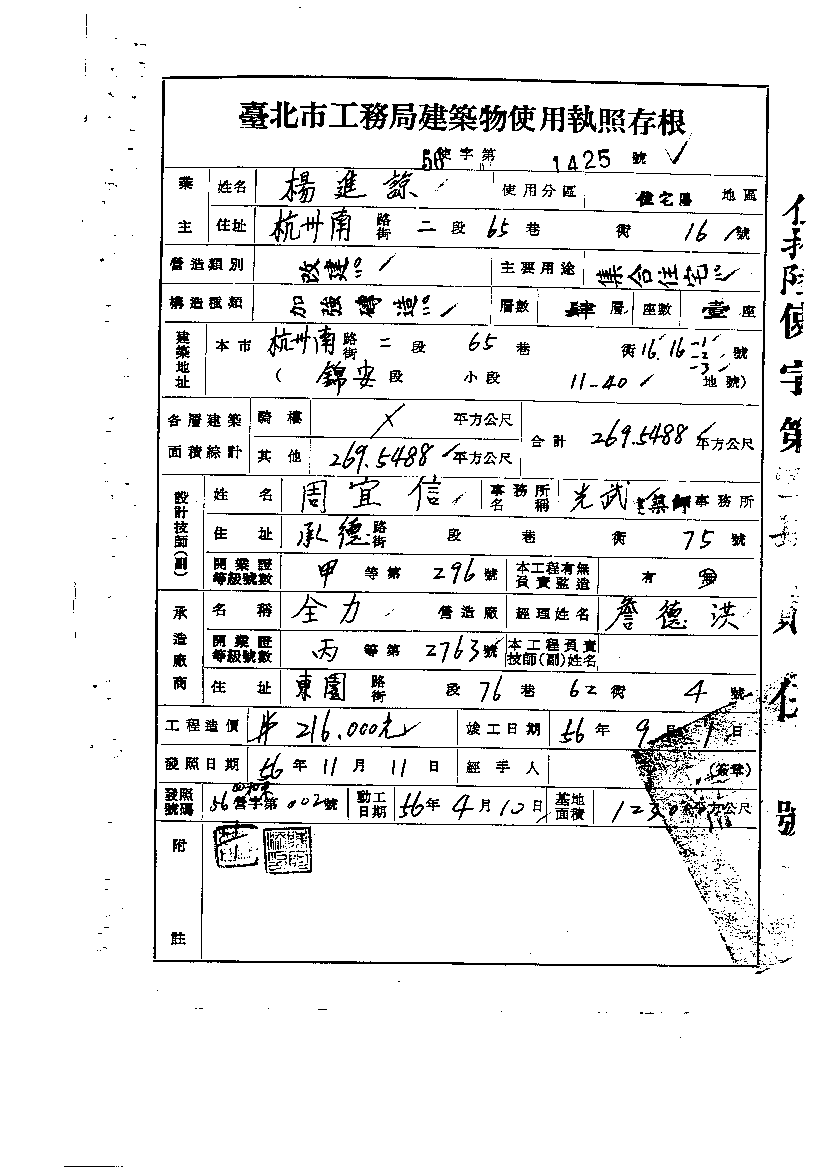 臺北市工務局建築物使用執照存根
56使字第 1425 號
業主 姓名 楊進諒 使用分區 住宅區 地區
住址 杭州南路街 二段 65巷 街 16號
營造類別 改建 主要用途 集合住宅
構造種類 加強磚造 層數 肆層 座數 壹座
建築地址 本市 杭州南路街 二段 65巷 街16.16-1-2-3號
(錦安段 小段 11-40 地號)
各層建築面積綜計 騎樓 X 平方公尺 合計 269.5488平方公尺
其他 269.5488平方公尺
設計技師(副) 姓名 周宜信 事務所名稱 光武建築師事務所
住址 承德路街 段 巷 街 75號
開業證等級號數 甲等第 296號 本工程有無負責監造 有 無
承造廠商 名稱 全力 營造廠 經理姓名 詹德洪
開業證等級號數 丙等第 2763號 本工程負責技師(副)姓名
住址 東園路街 段 76巷 62街 4號
工程造價 216,000元 竣工日期 56年 9月 1日
發照日期 56年 11月 11日 經手人 (簽章)
發照號碼 56營字第002號 動工日期 56年 4月 10日 基地面積 123 平方公尺
附註
使字第
號